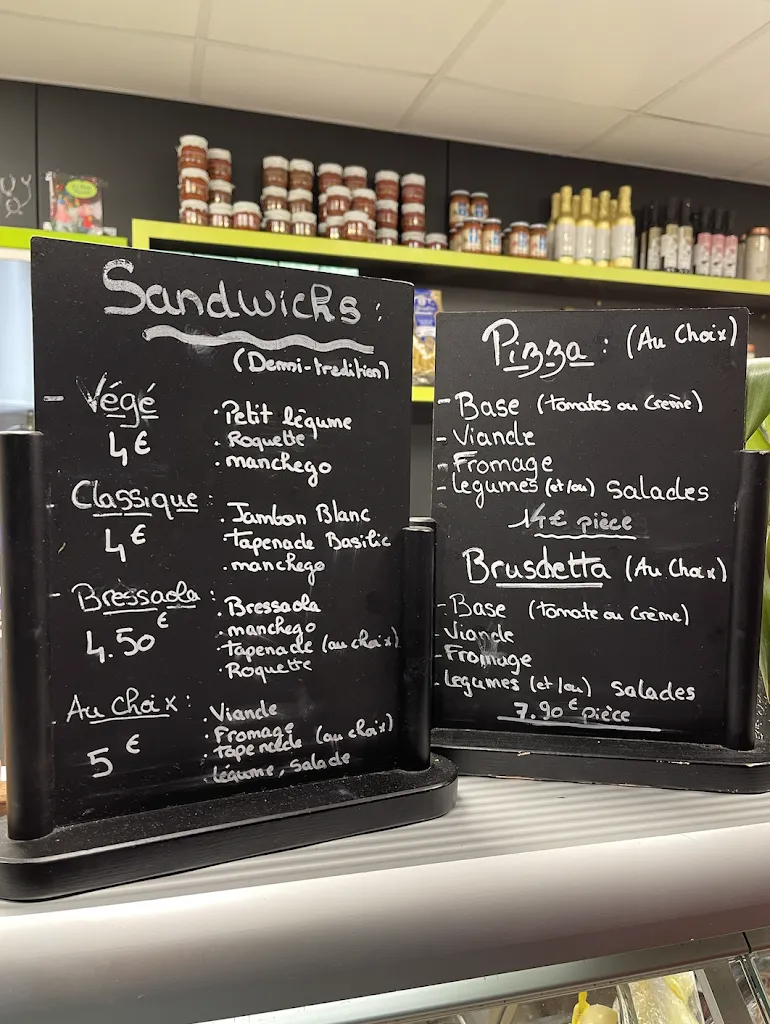 Sandwichs :
(Demi-tredition)
- Végé
4€
· Petit légume
· Roquette
· manchego
- Classique :
4€
· Jambon Blanc
· tapenade Basilic
· manchego
- Bressaola :
4.50€
· Bressaola
· manchego
· tapenade (au choix)
· Roquette
- Au choix :
5€
· Viande
· Fromage
· tapenade (au choix)
· légume, salade
Pizza : (Au Choix)
- Base (tomates ou Crème)
- Viande
- Fromage
- légumes (et/ou) Salades
14€ pièce
Brusdetta (Au Choix)
- Base (tomate ou Crème)
- Viande
- Fromage
- légumes (et/ou) Salades
7.90€ pièce